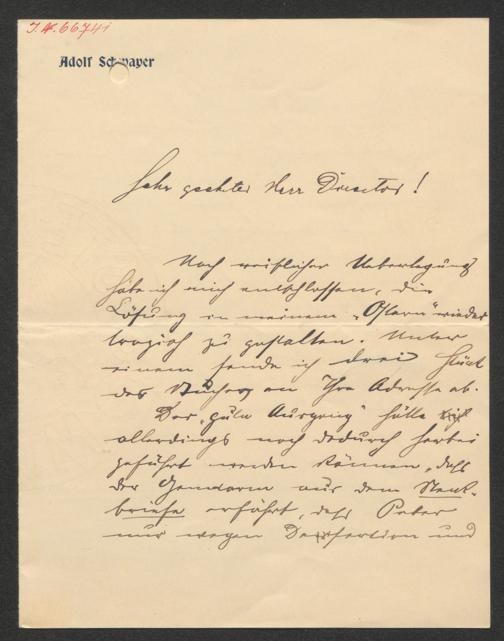 J.N. 66741
Adolf Schwayer
Sehr geehrter Herr Director!
Nach reiflicher Ueberlegung
habe ich mich entschlossen, die
Lösung in meinem „Ostern“ wieder
tragisch zu gestalten. Unter
einem sende ich drei Stück
des Buches an Ihre Adresse ab.
Der „gute Ausgang“ hätte
allerdings noch dadurch herbei
geführt werden können, daß
der Gendarm aus dem Steck-
briefe erfährt, daß Peter
nur wegen Desertion und